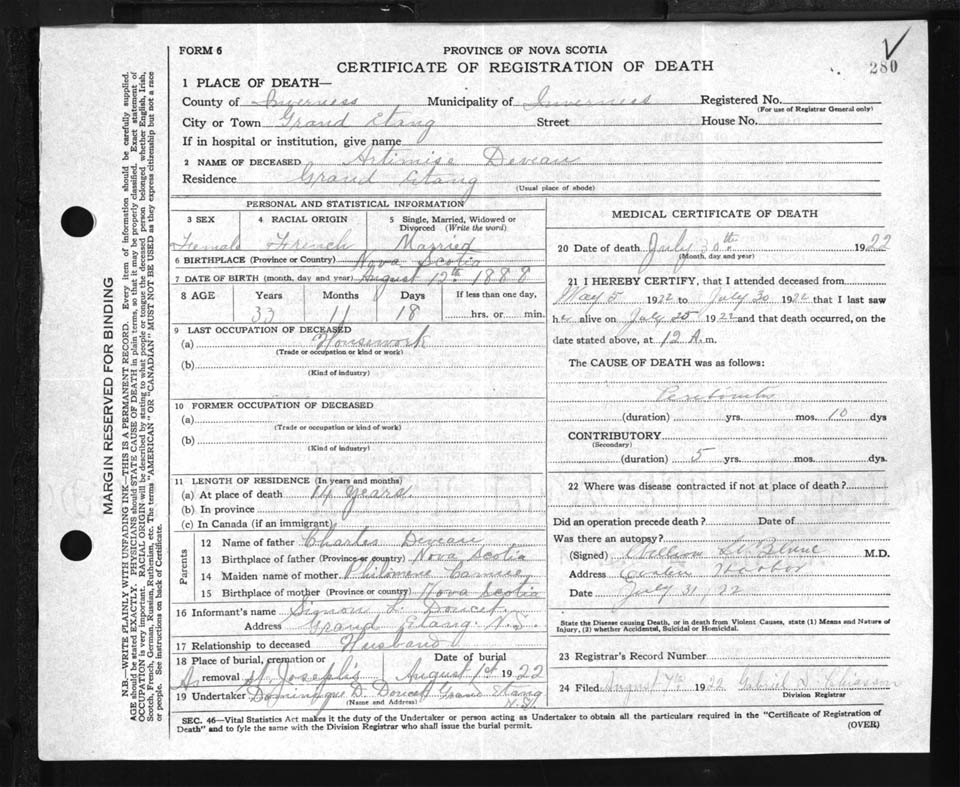 FORM 6
PROVINCE OF NOVA SCOTIA
CERTIFICATE OF REGISTRATION OF DEATH
280
1 PLACE OF DEATH—
County of Inverness Municipality of Inverness Registered No.
(For use of Registrar General only)
City or Town Grand Etang Street House No.
If in hospital or institution, give name
2 NAME OF DECEASED Artimise Deveau
Residence Grand Etang
(Usual place of abode)
PERSONAL AND STATISTICAL INFORMATION
3 SEX 4 RACIAL ORIGIN 5 Single, Married, Widowed or
Divorced (Write the word)
Female French Married
6 BIRTHPLACE (Province or Country) Nova Scotia
7 DATE OF BIRTH (month, day and year) August 12th 1888
8 AGE Years Months Days If less than one day,
33 11 18 hrs. or min.
9 LAST OCCUPATION OF DECEASED
(a) Housework
(Trade or occupation or kind or work)
(b)
(Kind of industry)
10 FORMER OCCUPATION OF DECEASED
(a)
(Trade or occupation or kind of work)
(b)
(Kind of industry)
11 LENGTH OF RESIDENCE (In years and months)
(a) At place of death 14 Years.
(b) In province
(c) In Canada (if an immigrant)
Parents
12 Name of father Charles Deveau
13 Birthplace of father (Province or country) Nova Scotia
14 Maiden name of mother Philomene
15 Birthplace of mother (Province or country) Nova Scotia
16 Informant's name Simon L. Doucet
Address Grand Etang. N.S.
17 Relationship to deceased Husband
18 Place of burial, cremation or Date of burial
removal St Joseph's August 1st 1922
19 Undertaker Dominique D. Doucet Grand Etang
(Name and Address) N.S.
MEDICAL CERTIFICATE OF DEATH
20 Date of death July 30th 1922
(Month, day and year)
21 I HEREBY CERTIFY, that I attended deceased from
May 5 1922 to July 30 1922 that I last saw
her alive on July 1922 and that death occurred, on the
date stated above, at 12 A.m.
The CAUSE OF DEATH was as follows:
Peritonitis
(duration) yrs. mos. 10 dys
CONTRIBUTORY
(Secondary)
(duration) 5 yrs. mos. dys.
22 Where was disease contracted if not at place of death?
Did an operation precede death? Date of
Was there an autopsy?
(Signed) M.D.
Address Harbor
Date July 31, 22
State the Disease causing Death, or in death from Violent Causes, state (1) Means and Nature of
Injury, (2) whether Accidental, Suicidal or Homicidal.
23 Registrar's Record Number
24 Filed August 7th 1922 Gabriel Chiasson
Division Registrar
SEC. 46—Vital Statistics Act makes it the duty of the Undertaker or person acting as Undertaker to obtain all the particulars required in the "Certificate of Registration of
Death" and to fyle the same with the Division Registrar who shall issue the burial permit. (OVER)
MARGIN RESERVED FOR BINDING
N.B.—WRITE PLAINLY WITH UNFADING INK—THIS IS A PERMANENT RECORD. Every item of information should be carefully supplied.
AGE should be stated EXACTLY. PHYSICIANS should STATE CAUSE OF DEATH in plain terms, so that it may be properly classified. Exact statement of
OCCUPATION is very important. RACIAL ORIGIN will be described by stating to what people or tongue the deceased person belonged whether English, Irish,
Scotch, French, German, Russian, Ruthenian, etc. The terms "AMERICAN" OR "CANADIAN" MUST NOT BE USED as they express citizenship but not a race
or people. See instructions on back of Certificate.